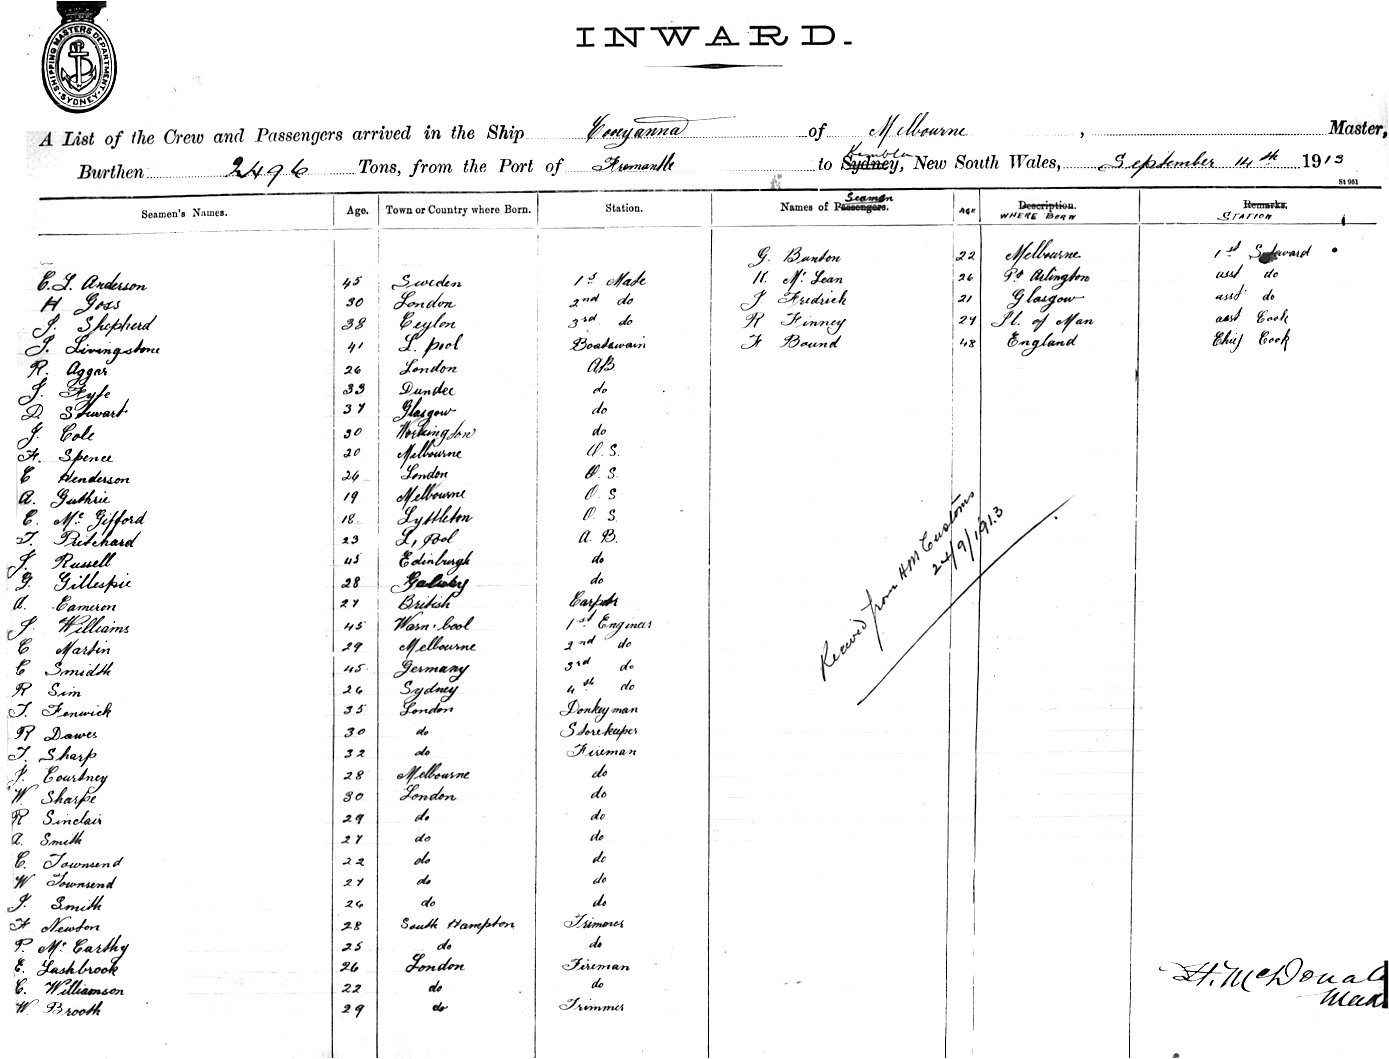 SHIPPING MASTERS DEPARTMENT SYDNEY
INWARD.
A List of the Crew and Passengers arrived in the Ship Cooeyanna of Melbourne, Master,
Burthen 2496 Tons, from the Port of Fremantle to Sydney, Kembla New South Wales, September 14th 1913
St 961
Seamen's Names. Age. Town or Country where Born. Station. Names of Passengers. Seamen AGE Description. WHERE BORN Remarks. STATION
G. Bunton 22 Melbourne 1st Steward
C. J. Anderson 45 Sweden 1st Mate K. Mc Lean 26 Pt Arlington asst do
H Goss 30 London 2nd do J Fredrick 21 Glasgow asst do
J. Shepherd 38 Ceylon 3rd do R Finney 27 Il. of Man asst Cook
J. Livingstone 41 L. pool Boatswain F Bound 48 England Chief Cook
R. Aggar 26 London AB
J. Fyfe 33 Dundee do
D. Stewart 37 Glasgow do
J. Cole 30 Workington do
F. Spence 20 Melbourne O. S.
C Henderson 24 London O. S.
A. Guthrie 19 Melbourne O. S
C. Mc Gifford 18 Lyttleton O. S.
T. Pritchard 23 L, pol A. B.
J. Russell 45 Edinburgh do
G. Gillespie 28 Galway do
A. Cameron 27 British Carptr
J. Williams 45 Warn'bool 1st Engineer
C Martin 29 Melbourne 2nd do
C Smidth 45 Germany 3rd do
R Sim 26 Sydney 4th do
T. Fenwick 35 London Donkeyman
R Dawes 30 do Storekeeper
T. Sharp 32 do Fireman
J. Courtney 28 Melbourne do
W Sharpe 30 London do
R Sinclair 29 do do
A. Smith 27 do do
C. Townsend 22 do do
W Townsend 27 do do
J. Smith 26 do do
F Newton 28 South Hampton Trimmer
P. Mc Carthy 25 do do
E. Lashbrook 26 London Fireman
C. Williamson 22 do do
W Brooth 29 do Trimmer
Received from HM Customs
24/9/1913
H. McDonal